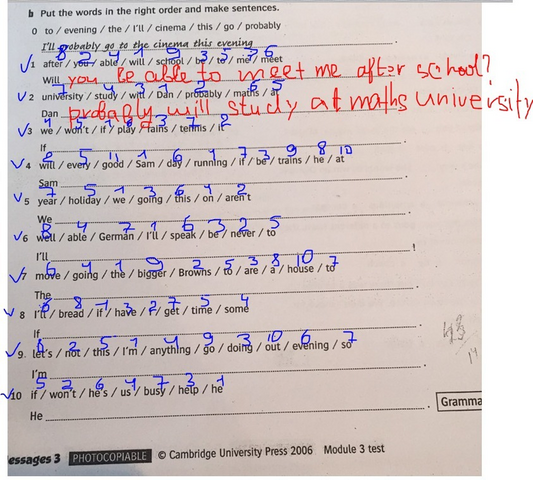 b Put the words in the right order and make sentences.
0 to / evening / the / I'll / cinema / this / go / probably
I'll probably go to the cinema this evening.
1 after / you / able / will / school / be / to / me / meet
Will you be able to meet me after school?
2 university / study / will / Dan / probably / maths / at
Dan probably will study at maths university
3 we / won't / if / play / rains / tennis / it
If
4 will / every / good / Sam / day / running / if / be / trains / he / at
Sam
5 year / holiday / we / going / this / on / aren't
We
6 well / able / German / I'll / speak / be / never / to
I'll !
7 move / going / the / bigger / Browns / to / are / a / house / to
The
8 I'll / bread / if / have / I / get / time / some
If
9. let's / not / this / I'm / anything / go / doing / out / evening / so
I'm
10 if / won't / he's / us / busy / help / he
He
Gramma
essages 3 PHOTOCOPIABLE © Cambridge University Press 2006 Module 3 test